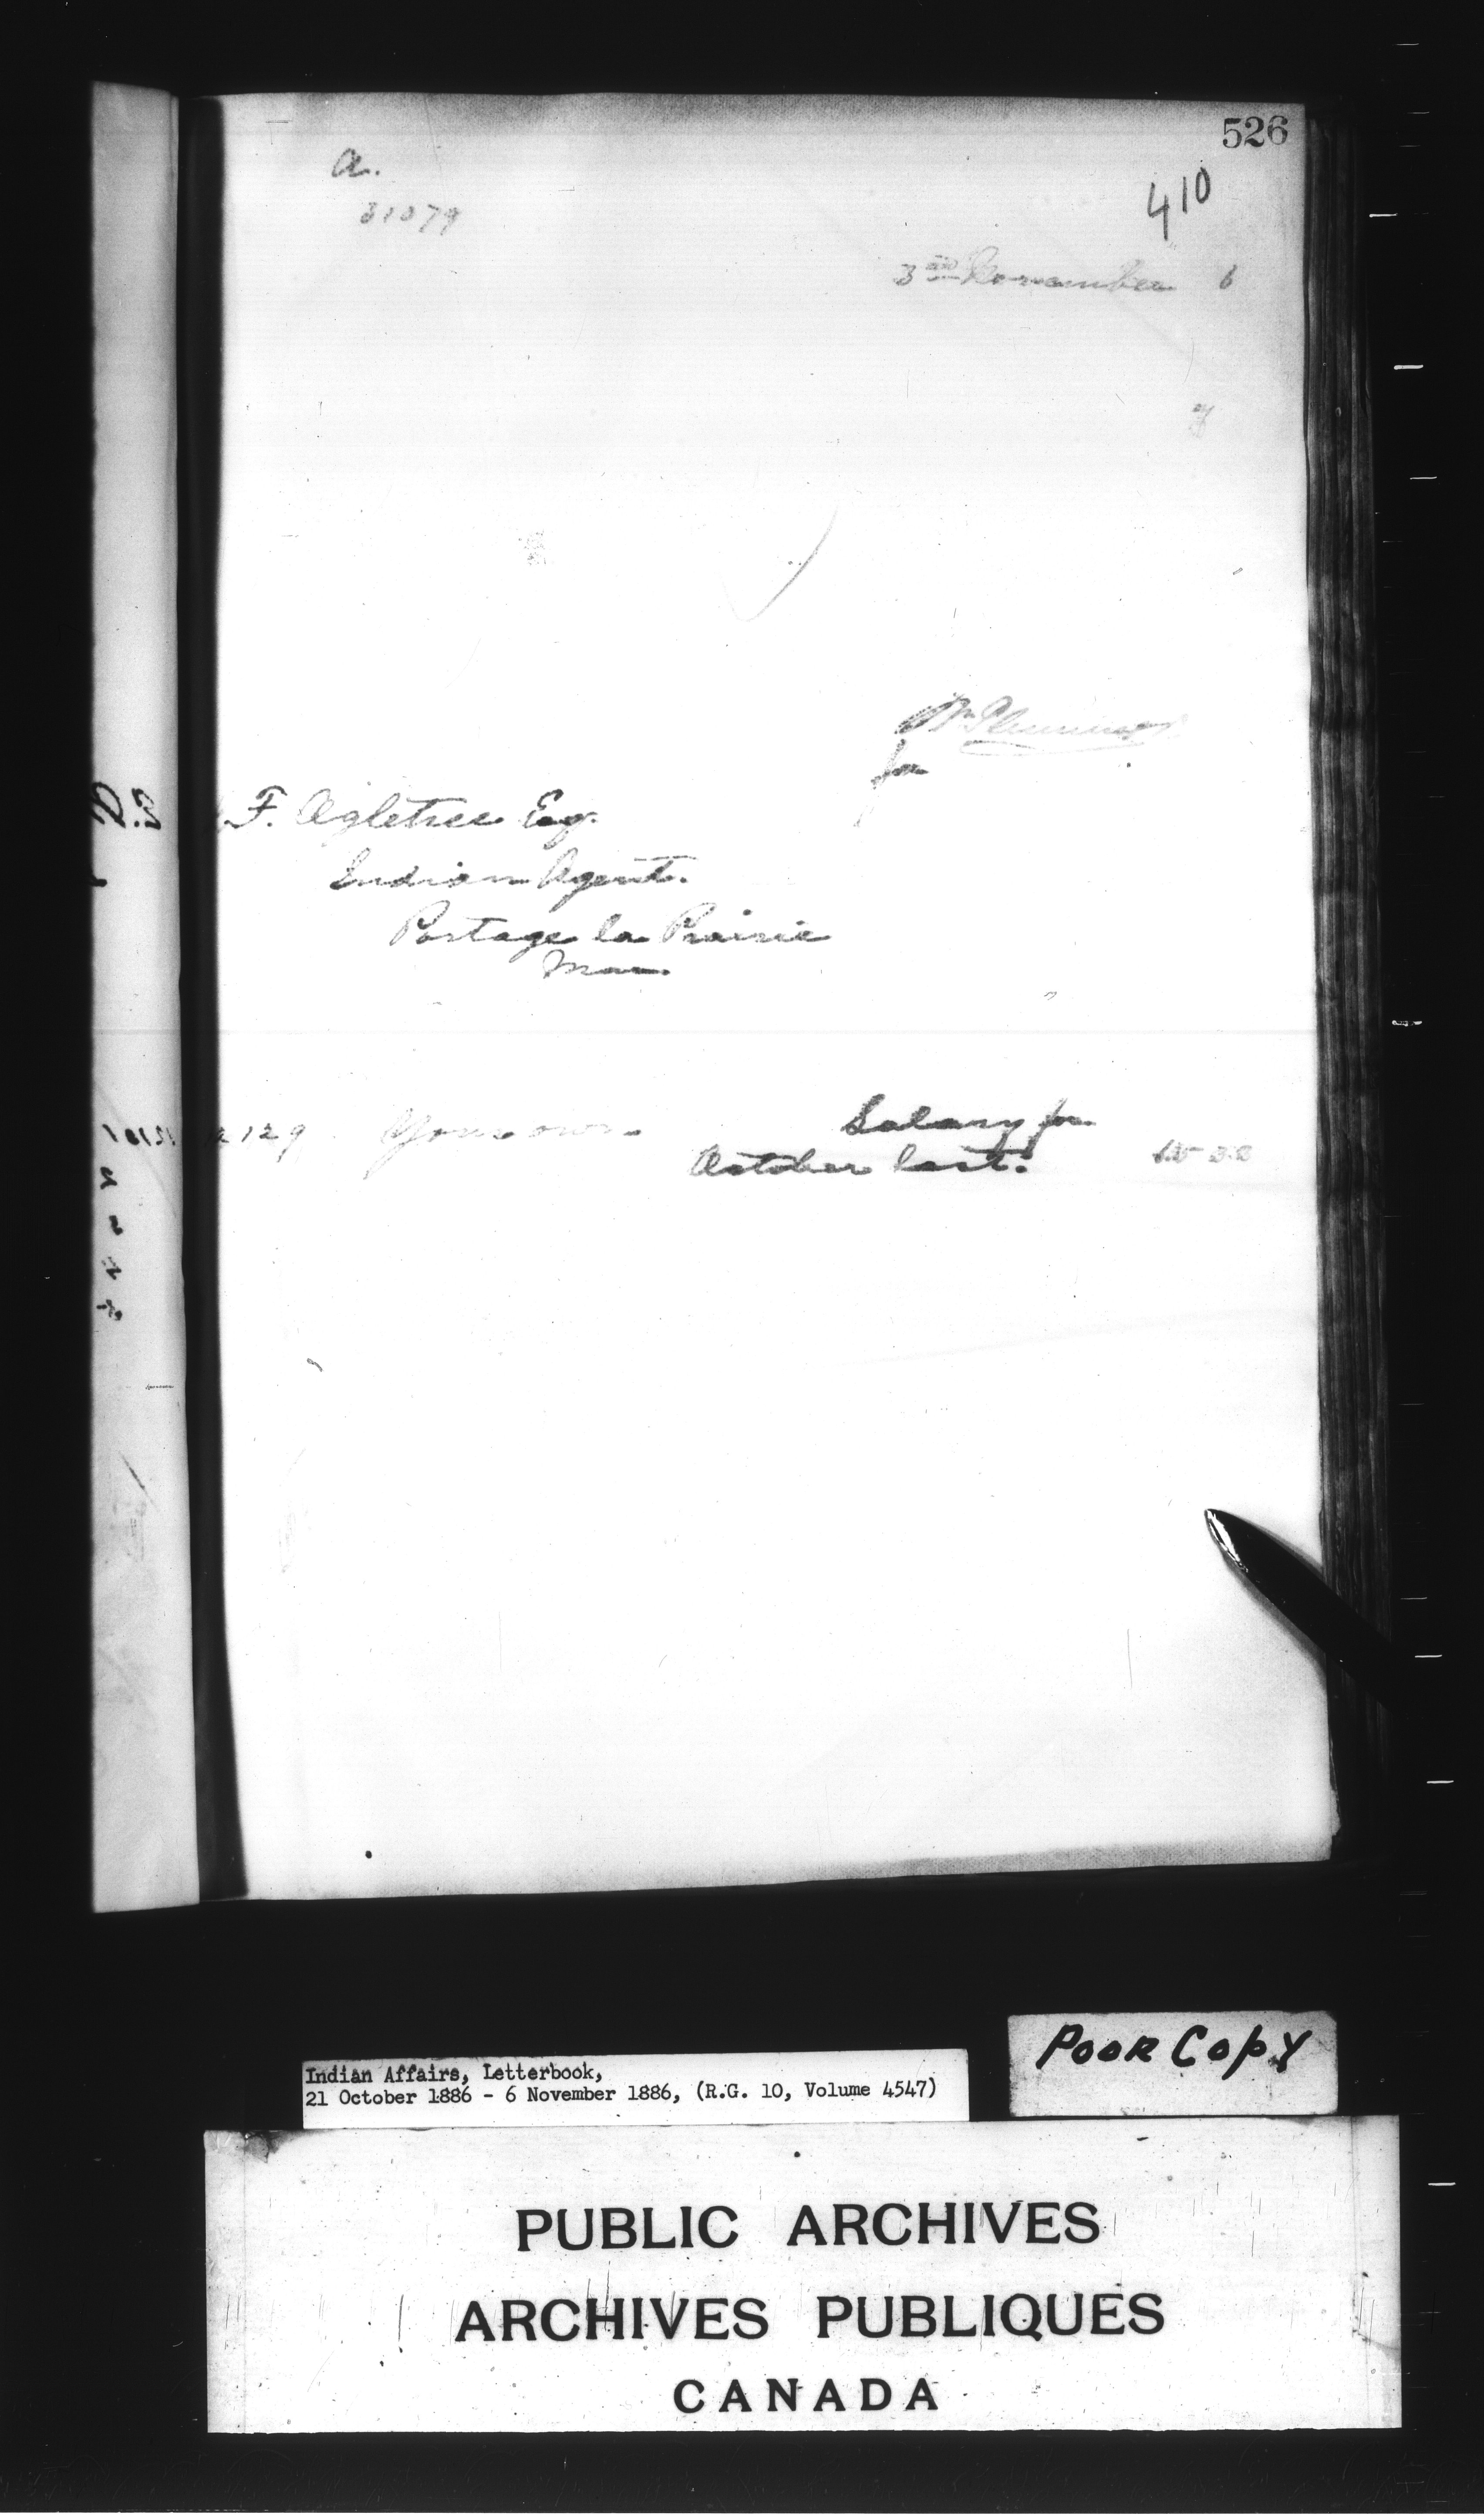 526
a.
31079
410
3rd November 6
Wm Plummer
for
F. Ogletree Esq.
Indian Agent.
Portage la Prairie
Man.
129 Your own Salary for
October last.
Poor Copy
Indian Affairs, Letterbook,
21 October 1886 - 6 November 1886, (R.G. 10, Volume 4547)
PUBLIC ARCHIVES
ARCHIVES PUBLIQUES
CANADA